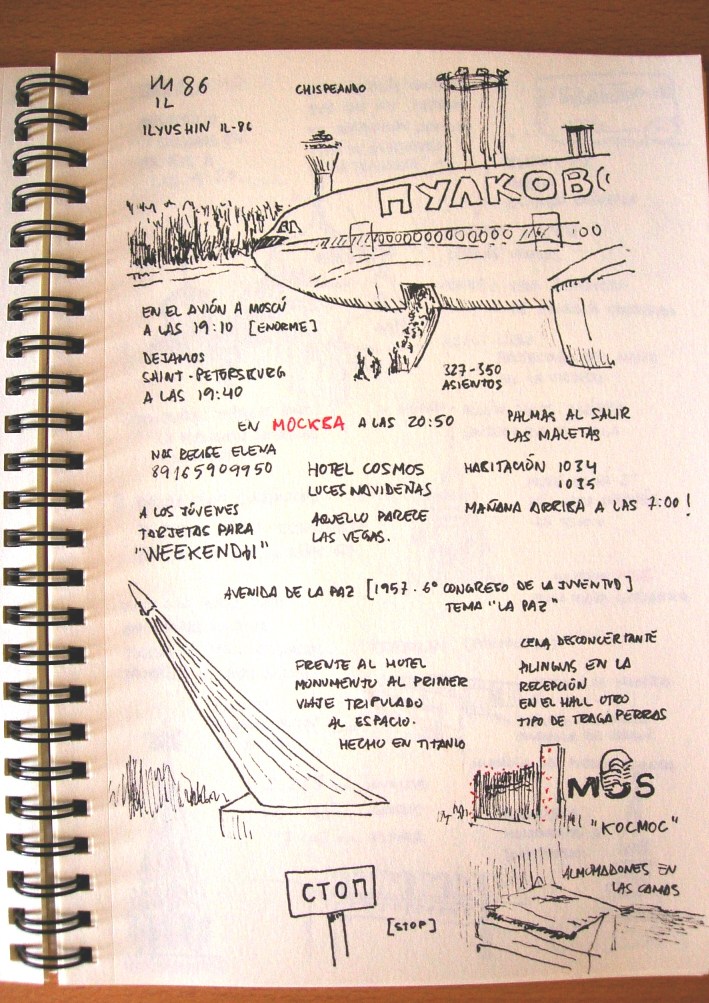 ИЛ 86
IL
CHISPEANDO
ILYUSHIN IL-86
ПУЛКОВ
EN EL AVIÓN A MOSCÚ
A LAS 19:10 [ENORME]
DEJAMOS
SAINT-PETERSBURG
A LAS 19:40
327-350
ASIENTOS
EN МОСКВА A LAS 20:50
PALMAS AL SALIR
LAS MALETAS
NOS RECIBE ELENA
89165909950
HOTEL COSMOS
LUCES NAVIDEÑAS
HABITACIÓN 1034
1035
A LOS JÓVENES
TARJETAS PARA
"WEEKENDA"
AQUELLO PARECE
LAS VEGAS.
MAÑANA ARRIBA A LAS 7:00!
AVENIDA DE LA PAZ [1957. 6º CONGRESO DE LA JUVENTUD]
TEMA "LA PAZ"
FRENTE AL HOTEL
MONUMENTO AL PRIMER
VIAJE TRIPULADO
AL ESPACIO.
HECHO EN TITANIO
CENA DESCONCERTANTE
ALINGUAS EN LA
RECEPCIÓN
EN EL HALL OTRO
TIPO DE TRAGAPERRAS
MOS
"КОСМОС"
СТОП
[STOP]
ALMOHADONES EN
LAS CAMAS